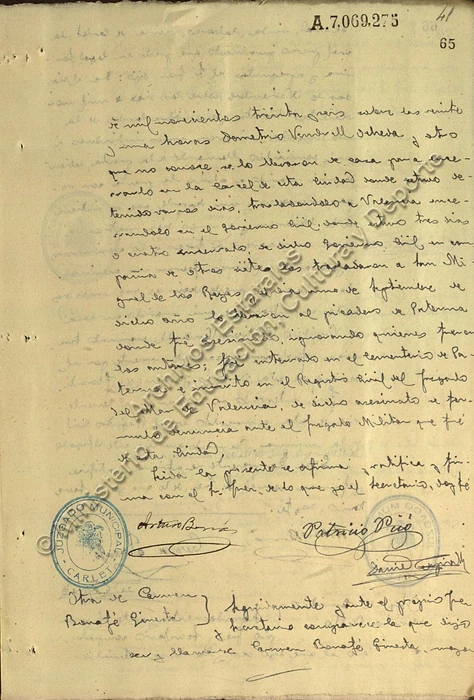 41
A.7.069.275
65
de mil novecientos treinta y seis sobre las veinte
y una horas Demetrio Vendrell y otro
que no conoce, se lo llevaron de casa para ence-
rrarlo en la Carcel de esta Ciudad donde estuvo de-
tenido varios dias, trasladandolo a Valencia ence-
rrandolo en el Gobierno Civil, donde estuvo tres dias
o cuatro encerrado, de dicho Gobierno Civil en com-
pañia de otros siete los trasladaron a San Mi-
guel de los Reyes, el dia uno de Septiembre de
dicho año lo llevaron al picadero de Paterna
donde fué asesinado, ignorando quienes fueron
los autores; fué enterrado en el cementerio de Pa-
terna e inscrito en el Registro Civil del Juzgado
del Mar de Valencia, de dicho asesinato se for-
muló denuncia ante el Juzgado Militar que fué
de esta Ciudad.
Leida la presente se afirma y ratifica y fir-
ma con el Sr. Juez de lo que yo el Secretario, doy fé
Arturo
Patricio Picó
JUZGADO MUNICIPAL
CARLET
Otra de Carmen
Bonafé Ginesta
Seguidamente y ante el propio Juez
y Secretario comparece la que dijo
ser y llamarse Carmen Bonafé Ginesta, mayor
© Archivos Estatales
Ministerio de Educación, Cultura y Deporte